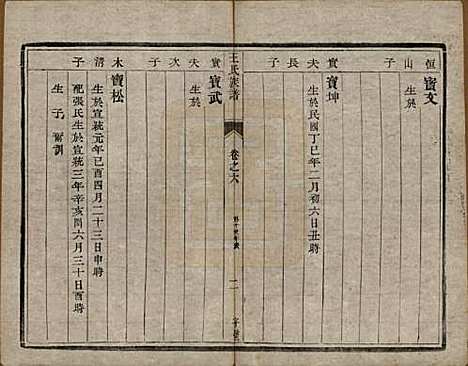 恒山子
寶文
生於
實夫長子
寶坤
生於民國丁巳年二月初六日丑時
王氏族譜
卷之六
實夫次子
寶武
生於
木清子
寶松
生於宣統元年己酉四月二十三日申時
配張氏生於宣統三年辛亥閏六月三十日酉時
生子